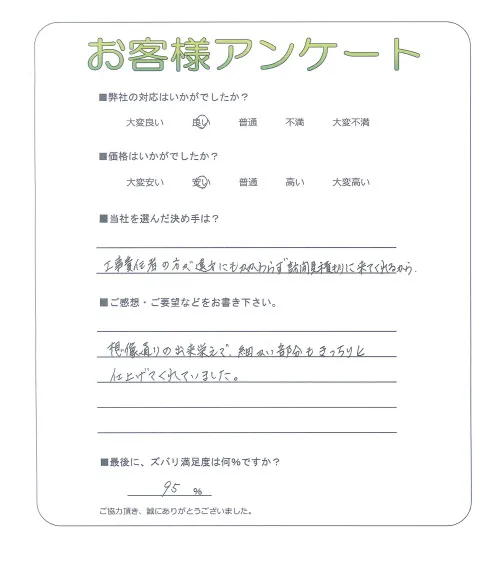 お客様アンケート
■弊社の対応はいかがでしたか?
大変良い 良い 普通 不満 大変不満
■価格はいかがでしたか?
大変安い 安い 普通 高い 大変高い
■当社を選んだ決め手は?
工事責任者の方が遠方にもかかわらず訪問見積切に来てくれるから.
■ご感想・ご要望などをお書き下さい。
想像通りの出来栄えで、細かい部分もきっちりと
仕上げてくれていました。
■最後に、ズバリ満足度は何%ですか?
95 %
ご協力頂き、誠にありがとうございました。